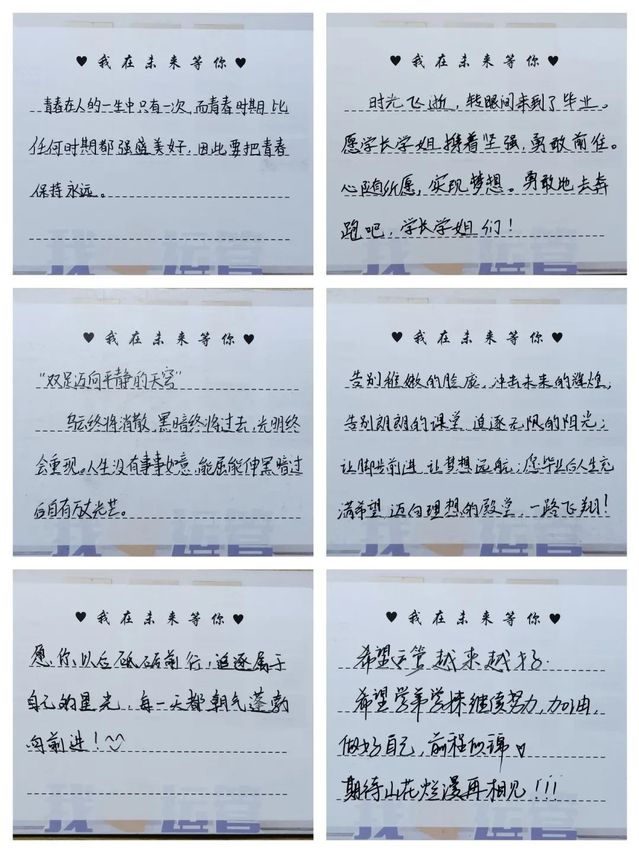 ♥ 我在未来等你 ♥
青春在人的一生中只有一次，而青春时期比
任何时期都强盛美好，因此要把青春
保持永远。
我 运营
♥ 我在未来等你 ♥
时光飞逝，转眼间来到了毕业。
愿学长学姐携着坚强，勇敢前往。
心随所愿，实现梦想。勇敢地去奔
跑吧，学长学姐们！
♥ 我在未来等你 ♥
“双足迈向平静的天穹”
乌云终将消散，黑暗终将过去，光明终
会重现。人生没有事事如意，能屈能伸黑暗过
后自有万丈光芒。
♥ 我在未来等你 ♥
告别稚嫩的脸庞，冲击未来的辉煌；
告别朗朗的课堂，追逐无限的阳光；
让脚步前进，让梦想远航；愿毕业后人生充
满希望，迈向理想的殿堂，一路飞翔！
♥ 我在未来等你 ♥
愿你以后砥砺前行，追逐属于
自己的星光，每一天都朝气蓬勃
向前进！
♥ 我在未来等你 ♥
希望运管越来越好.
希望学弟学妹继续努力，加油，
做好自己，前程似锦
期待山花烂漫再相见！！！